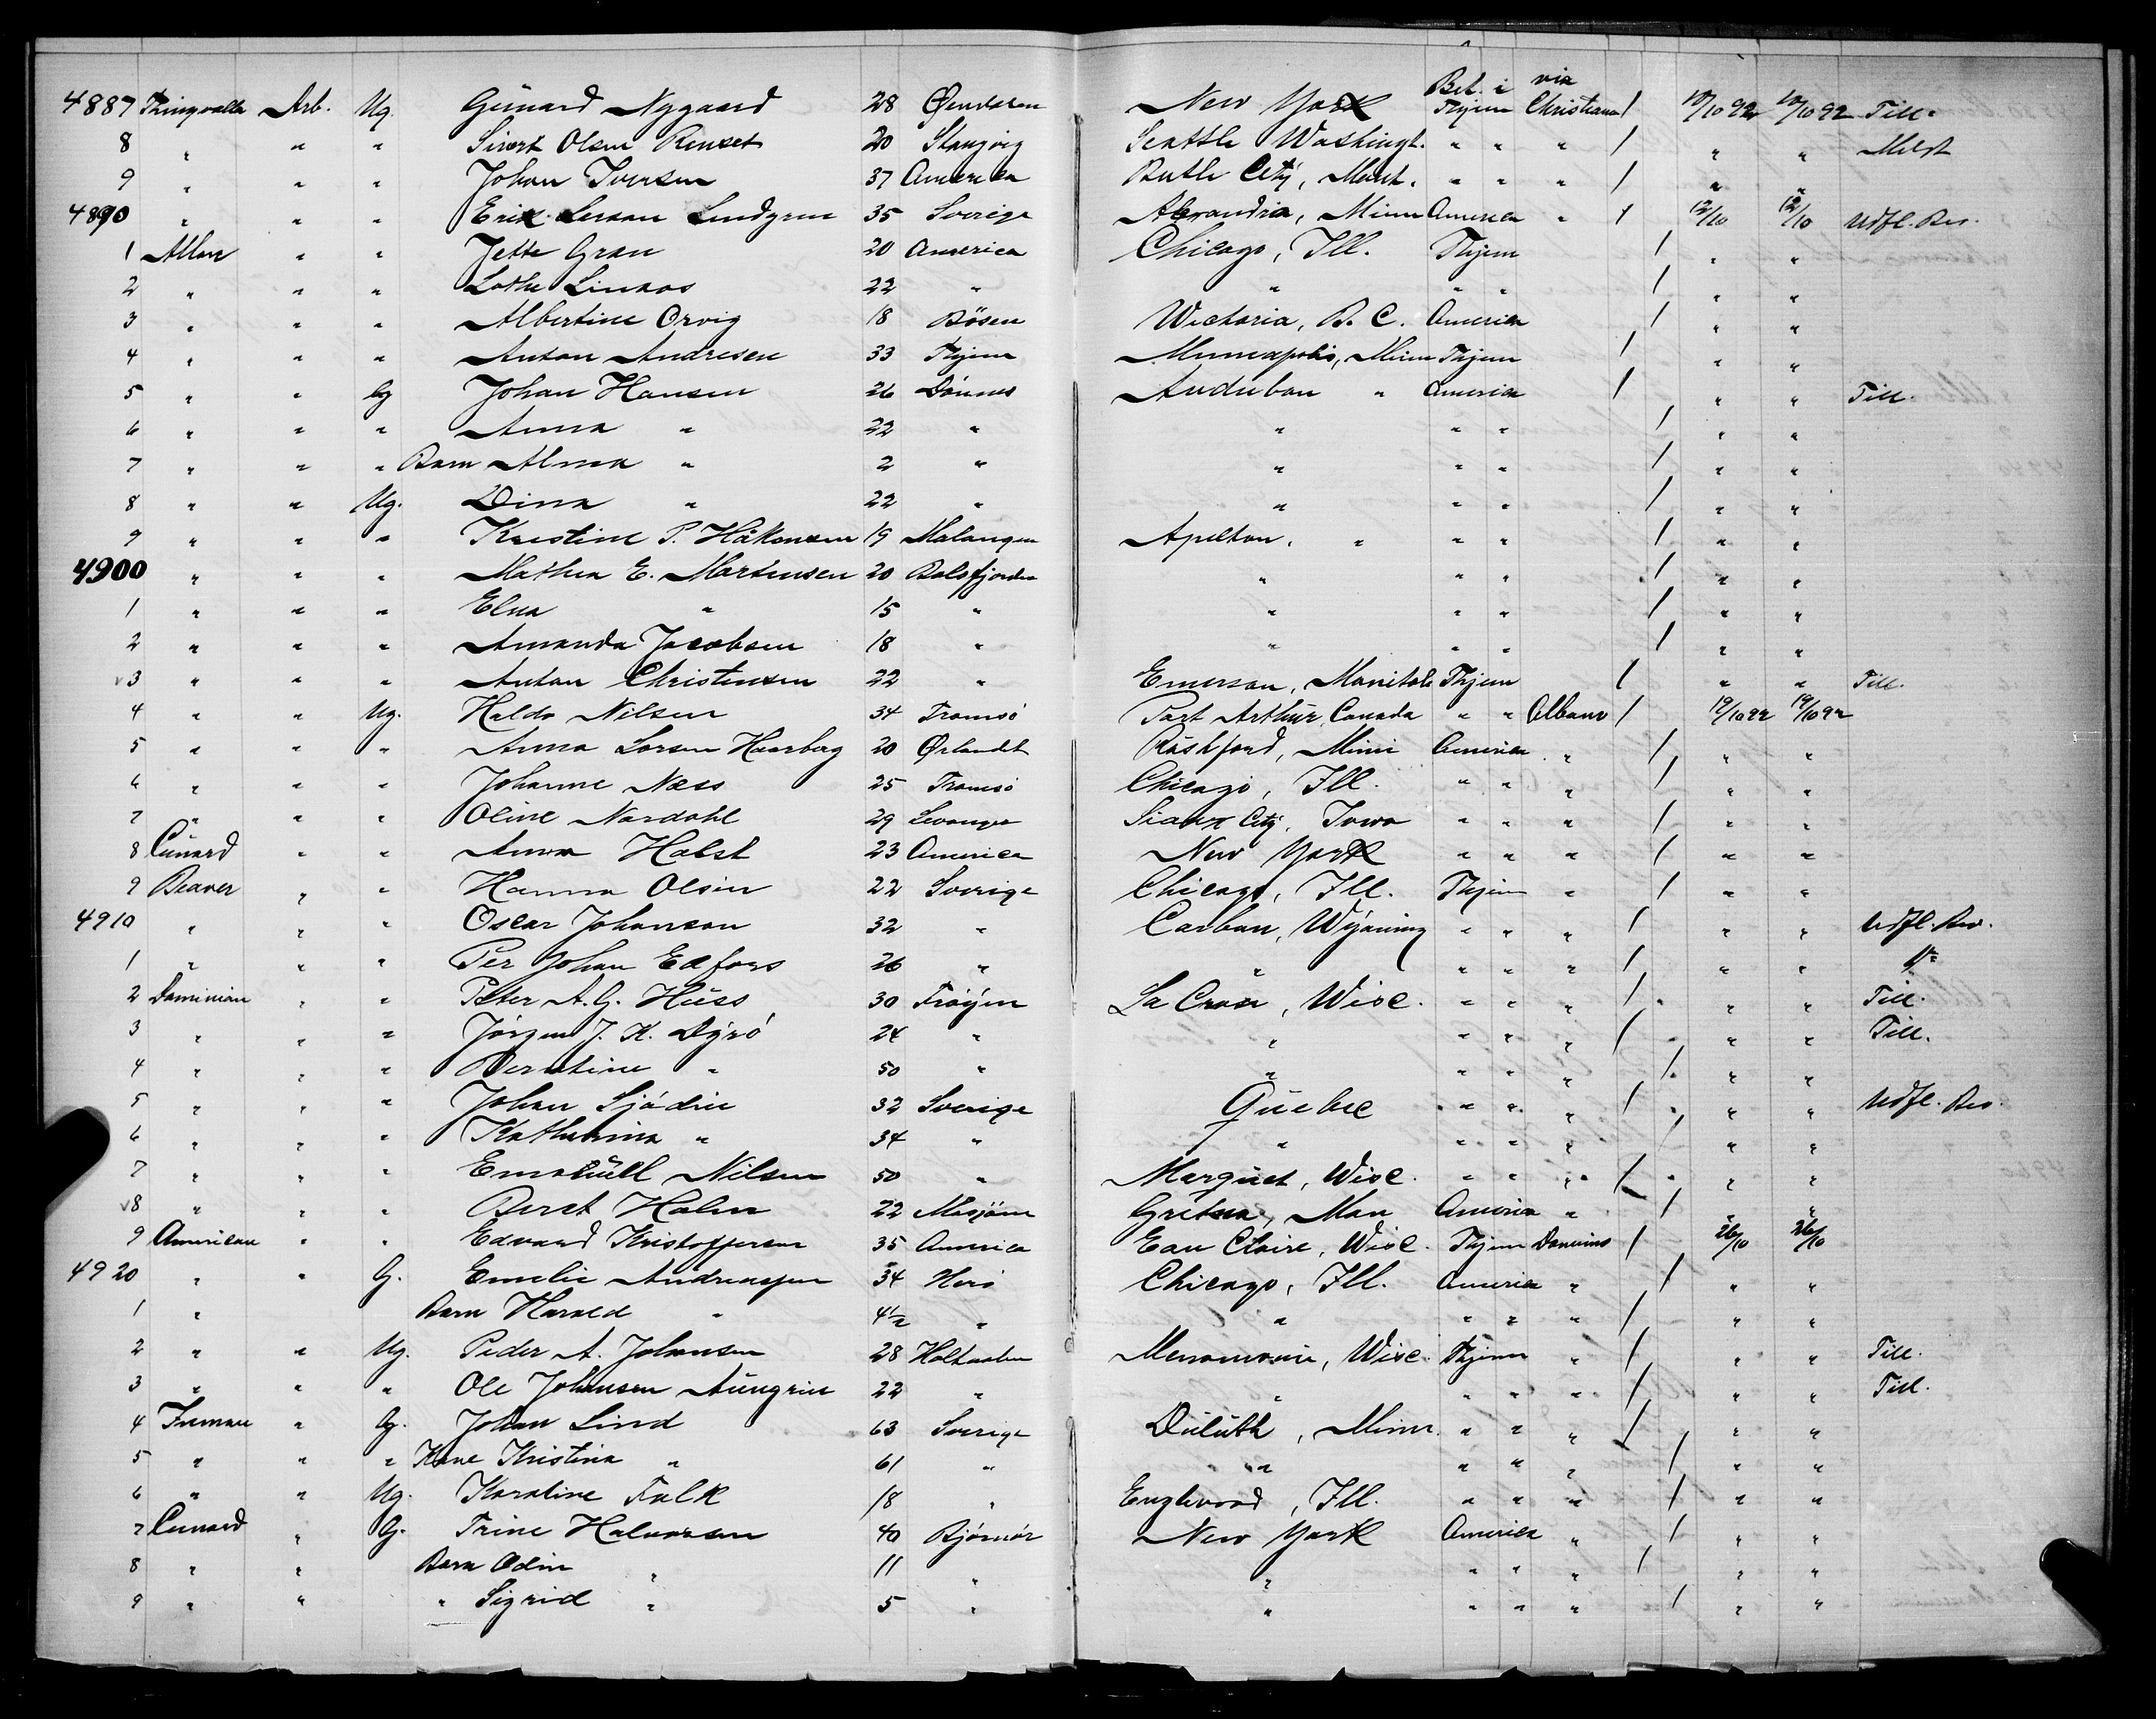 Bet. i via
4887 Thingvalla Arb. Ug. Gunard Nygaard 28 New York Thjem Christiania / 12/10 92 12/10 92 Till.
8 " " " Sivert Olsen Renset 20 Seattle Washingt. " " " / " " Meldt
9 " " " Johan Iversen 37 America Butle City, Mont. " " " / " "
4890 " " " Erik Larsson Lindgren 35 Sverige Alexandria, Minn America " / 12/10 12/10 Udfl. Bev.
1 Allan " " Jette Gran 20 America Chicago, Ill. Thjem / " "
2 " " " Lothe Linaas 22 " " " " / " "
3 " " " Albertine Orvig 18 Bösen Wictoria, B. C. America / " "
4 " " " Anton Andresen 33 Thjem Minneapolis, Minn Thjem / " "
5 " " G Johan Hansen 26 Dönnes Audubon " America / " " Till.
6 " " " Anna " 22 " " " " / " "
7 " " " Barn Alma " 2 " " " " / " "
8 " " Ug. Dina " 22 " " " " / " "
9 " " " Kristine P. Håkensen 19 Malangen Apelton. " " " / " "
4900 " " " Mathea E. Mortensen 20 Balsfjorden " " " / " "
1 " " " Elna " 15 " " " " / " "
2 " " " Amanda Jacobsen 18 " " " " / " "
3 " " " Anton Christensen 22 " Emerson, Manitob Thjem / " " Till.
4 " " Ug. Haldo Nilsen 34 Tromsö Port Arthur, Canada " " Albano / 19/10 92 19/10 92
5 " " " Anna Larsen Haarberg 20 Ørlandet Rushford, Minn America " / " "
6 " " " Johanne Næss 25 Tromsö Chicago, Ill. " " " / " "
7 " " " Oline Nordahl 29 Levanger Sioux City, Iowa " " " / " "
8 Cunard " " Anna Holst 23 America New York " " " / " "
9 Beaver " " Hanna Olsen 22 Sverige Chicago, Ill. Thjem " / " "
4910 " " " Oscar Johanson 32 " Carbon, Wyoming " " " / " " Udfl. Bev.
1 " " " Per Johan Edfors 26 " " " " " / " "
2 Dominion " " Peter A. G. Huss 30 Fröyen La Cross, Wisc. " " " / " " Till.
3 " " " Jörgen J. K. Dyrö 24 " " " " " / " " Till.
4 " " " Berntine " 50 " " " " " / " "
5 " " " Johan Sjödin 32 Sverige Quebec " " " / " " Udfl. Bev.
6 " " " Katharina " 34 " " " " " / " "
7 " " " Emanuell Nilsen 50 " Marquet, Wisc. " " " / " "
8 " " " Beret Holm 22 Mosjöen Gretna, Man America " / " "
9 American " " Edvard Kristoffersen 35 America Eau Claire, Wisc. Thjem Domino / 26/10 26/10
4920 " " G. Emelie Andreassen 34 Herö Chicago, Ill. America " / " "
1 " Barn Harald " 4½ " " " " " / " "
2 " " Ug. Peder A. Johansen 28 Holtaalen Menomonie, Wisc. Thjem " / " " Till.
3 " " " Ole Johansen Aungrin 22 " " " " " / " " Till.
4 Inman " G. Johan Lind 63 Sverige Duluth, Minn. " " " / " "
5 " " " Kone Kristina " 61 " " " " " / " "
6 " " Ug. Karoline Falk 18 " Englwood, Ill. " " " / " "
7 Cunard " G. Trine Halvorsen 40 Björnör New York America " / " "
8 " " Barn Odin " 11 " " " " " / " "
9 " " " Sigrid " 5 " " " " " / " "